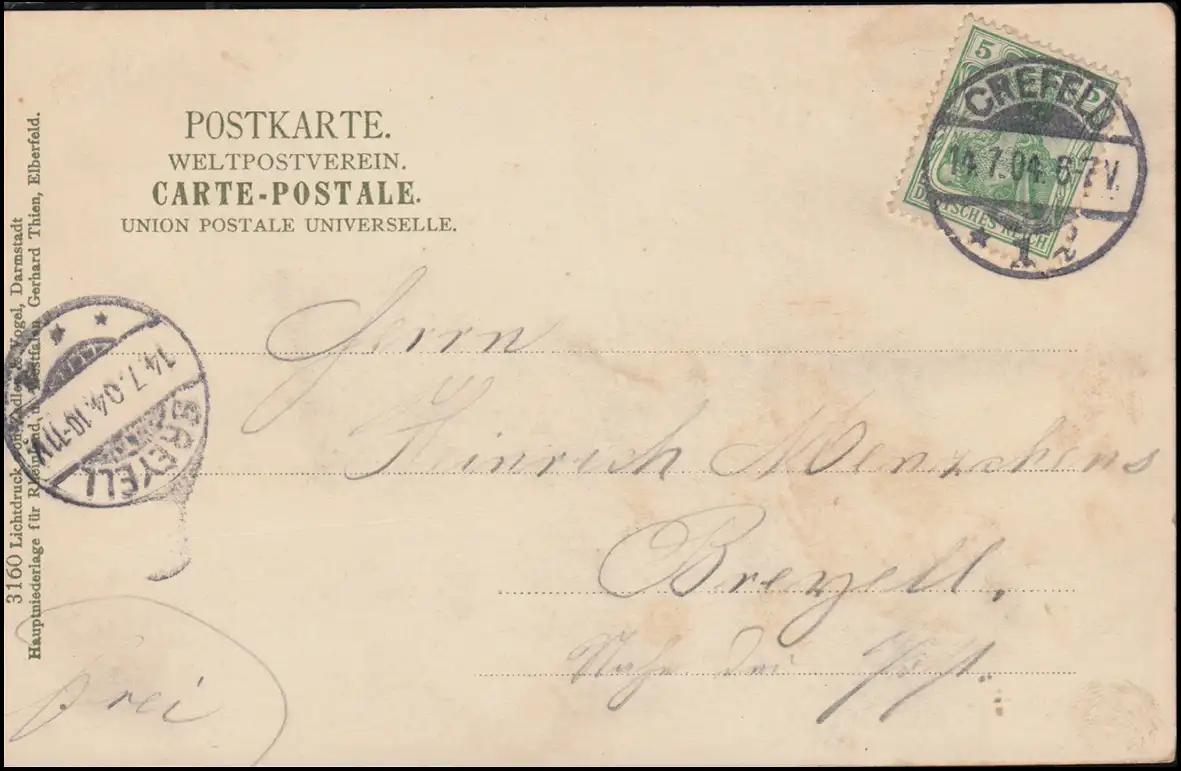 POSTKARTE.
WELTPOSTVEREIN.
CARTE-POSTALE.
UNION POSTALE UNIVERSELLE.
5
DEUTSCHES REICH
CREFELD
14.7.04. 6-7V.
* 1
Herrn
Heinrich
Breyell.
Nahe der Post.
frei
BREYELL
14.7.04.10-11V.
3160 Lichtdruck Vogel, Darmstadt
Hauptniederlage für Rheinland Westfalen Gerhard Thien, Elberfeld.